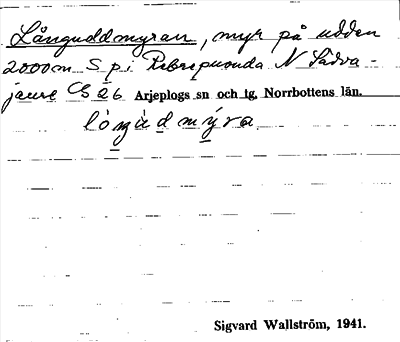 Långuddmyran, myr på udden
2000 m S p. i Rebnepuouda N Sädva-
jaure C5 26 Arjeplogs sn och tg, Norrbottens län.
lòŋùdmýra
Sigvard Wallström, 1941.